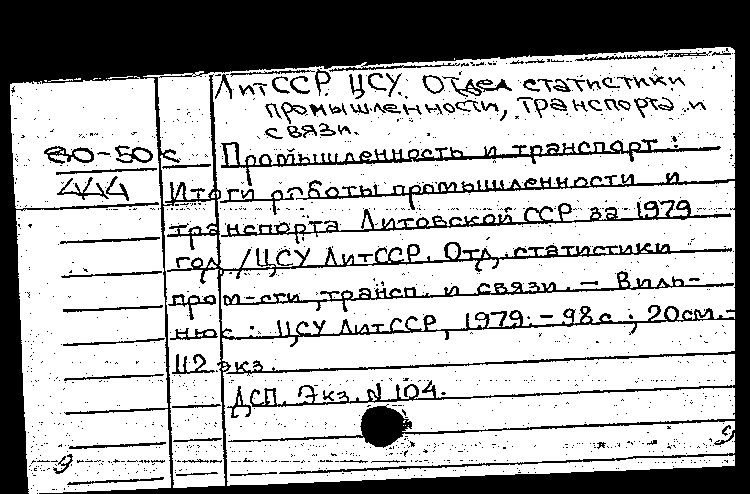 ЛитССР. ЦСУ. Отдел статистики
промышленности, транспорта и
связи.
80-50 с Промышленность и транспорт:
444 Итоги работы промышленности и
транспорта Литовской ССР за 1979
год /ЦСУ ЛитССР. Отд. статистики
пром-сти, трансп. и связи. — Виль-
нюс: ЦСУ ЛитССР, 1979. - 98с.; 20см. -
112 экз.
ДСП. Экз. N 104.
9